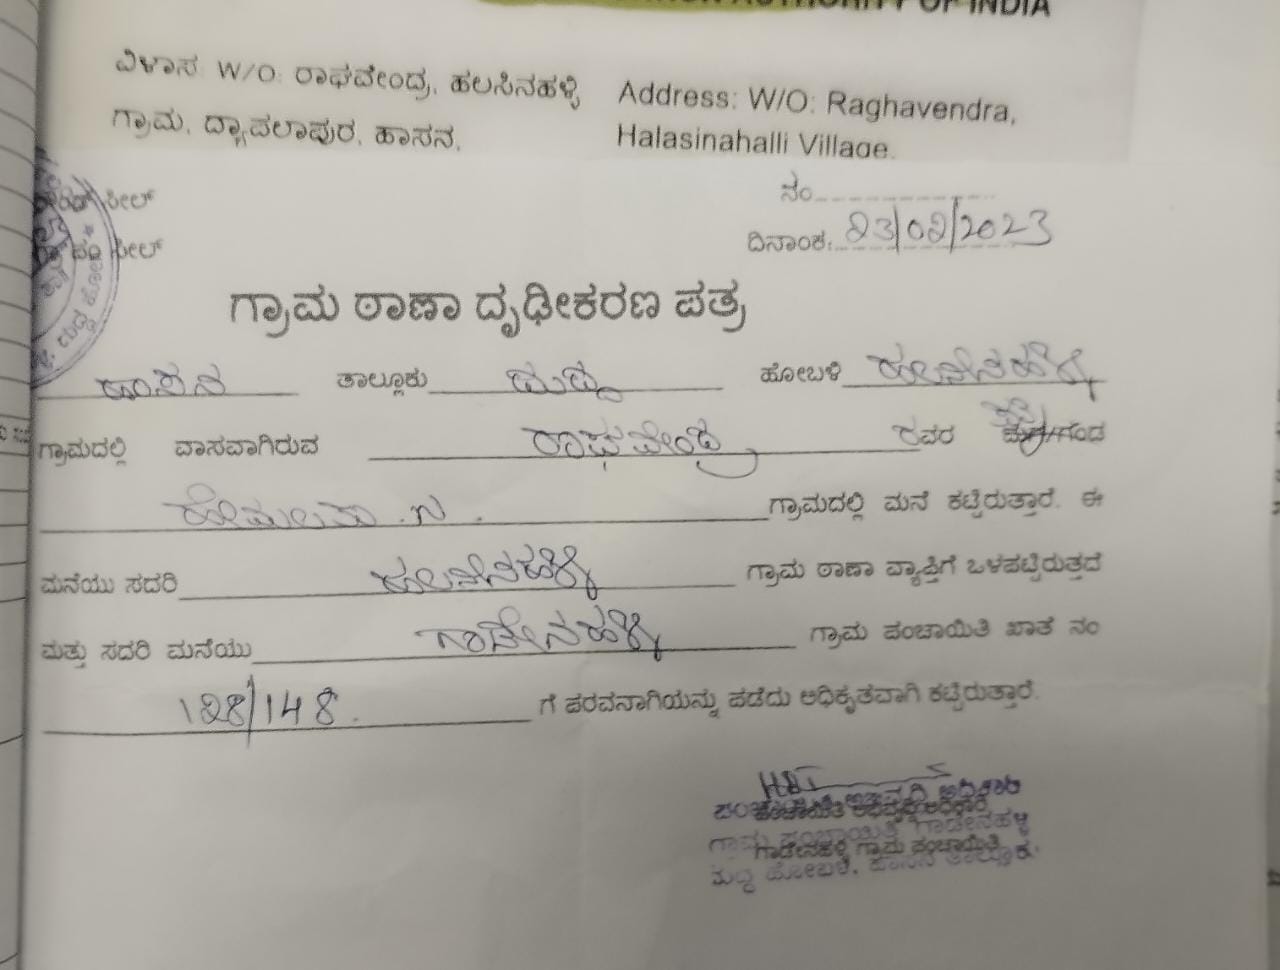 AUTHORITY OF INDIA
ವಿಳಾಸ: W/O: ರಾಘವೇಂದ್ರ, ಹಲಸಿನಹಳ್ಳಿ
ಗ್ರಾಮ, ದ್ಯಾಪಲಾಪುರ, ಹಾಸನ,
Address: W/O: Raghavendra,
Halasinahalli Village,
ಸೀಲ್
ನಂ
ಸೀಲ್
ದಿನಾಂಕ: 23/02/2023
ಗ್ರಾಮ ಠಾಣಾ ದೃಢೀಕರಣ ಪತ್ರ
ಹಾಸನ ತಾಲ್ಲೂಕು ದುದ್ದ ಹೋಬಳಿ ಹಲಸಿನಹಳ್ಳಿ
ಗ್ರಾಮದಲ್ಲಿ ವಾಸವಾಗಿರುವ ರಾಘವೇಂದ್ರ ರವರ ಗಂಡ
ಹೇಮಲತಾ .N. ಗ್ರಾಮದಲ್ಲಿ ಮನೆ ಕಟ್ಟಿರುತ್ತಾರೆ. ಈ
ಮನೆಯು ಸದರಿ ಹಲಸಿನಹಳ್ಳಿ ಗ್ರಾಮ ಠಾಣಾ ವ್ಯಾಪ್ತಿಗೆ ಒಳಪಟ್ಟಿರುತ್ತದೆ
ಮತ್ತು ಸದರಿ ಮನೆಯು ಗಾಡೇನಹಳ್ಳಿ ಗ್ರಾಮ ಪಂಚಾಯಿತಿ ಖಾತೆ ನಂ
128/148. ಗೆ ಪರವನಾಗಿಯನ್ನು ಪಡೆದು ಅಧಿಕೃತವಾಗಿ ಕಟ್ಟಿರುತ್ತಾರೆ.
ಪಂಚಾಯಿತಿ ಅಭಿವೃದ್ಧಿ ಅಧಿಕಾರಿ
ಗ್ರಾಮ ಪಂಚಾಯಿತಿ ಗಾಡೇನಹಳ್ಳಿ
ಗಾಡೇನಹಳ್ಳಿ ಗ್ರಾಮ ಪಂಚಾಯಿತಿ
ದುದ್ದ ಹೋಬಳಿ, ಹಾಸನ ತಾಲ್ಲೂಕು